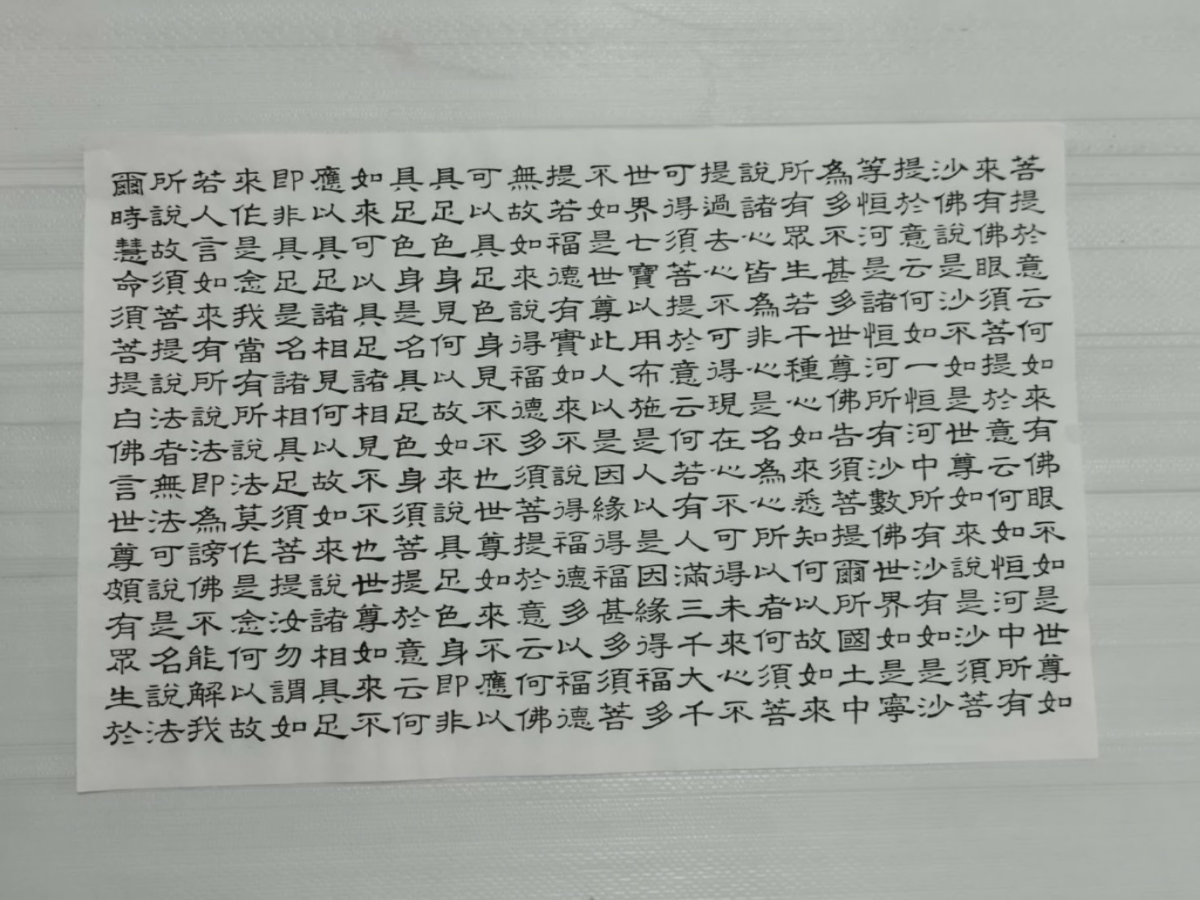 菩提於意云何如來有佛眼不如是世尊如
來有佛眼須菩提於意云何如恒河中所有
沙佛說是沙不如是世尊如來說是沙須菩
提於意云何如一恒河中所有沙有如是沙
等恒河是諸恒河所有沙數佛世界如是寧
為多不甚多世尊佛告須菩提爾所國土中
所有眾生若干種心如來悉知何以故如來
說諸心皆為非心是名為心所以者何須菩
提過去心不可得現在心不可得未來心不
可得須菩提於意云何若有人滿三千大千
世界七寶以用布施是人以是因緣得福多
不如是世尊此人以是因緣得福甚多須菩
提若福德有實如來不說得福德多以福德
無故如來說得福德多須菩提於意云何佛
可以具足色身見不不也世尊如來不應以
具足色身見何以故如來說具足色身即非
具足色身是名具足色身須菩提於意云何
如來可以具足諸相見不不也世尊如來不
應以具足諸相見何以故如來說諸相具足
即非具足是名諸相具足須菩提汝勿謂如
來作是念我當有所說法莫作是念何以故
若人言如來有所說法即為謗佛不能解我
所說故須菩提說法者無法可說是名說法
爾時慧命須菩提白佛言世尊頗有眾生於